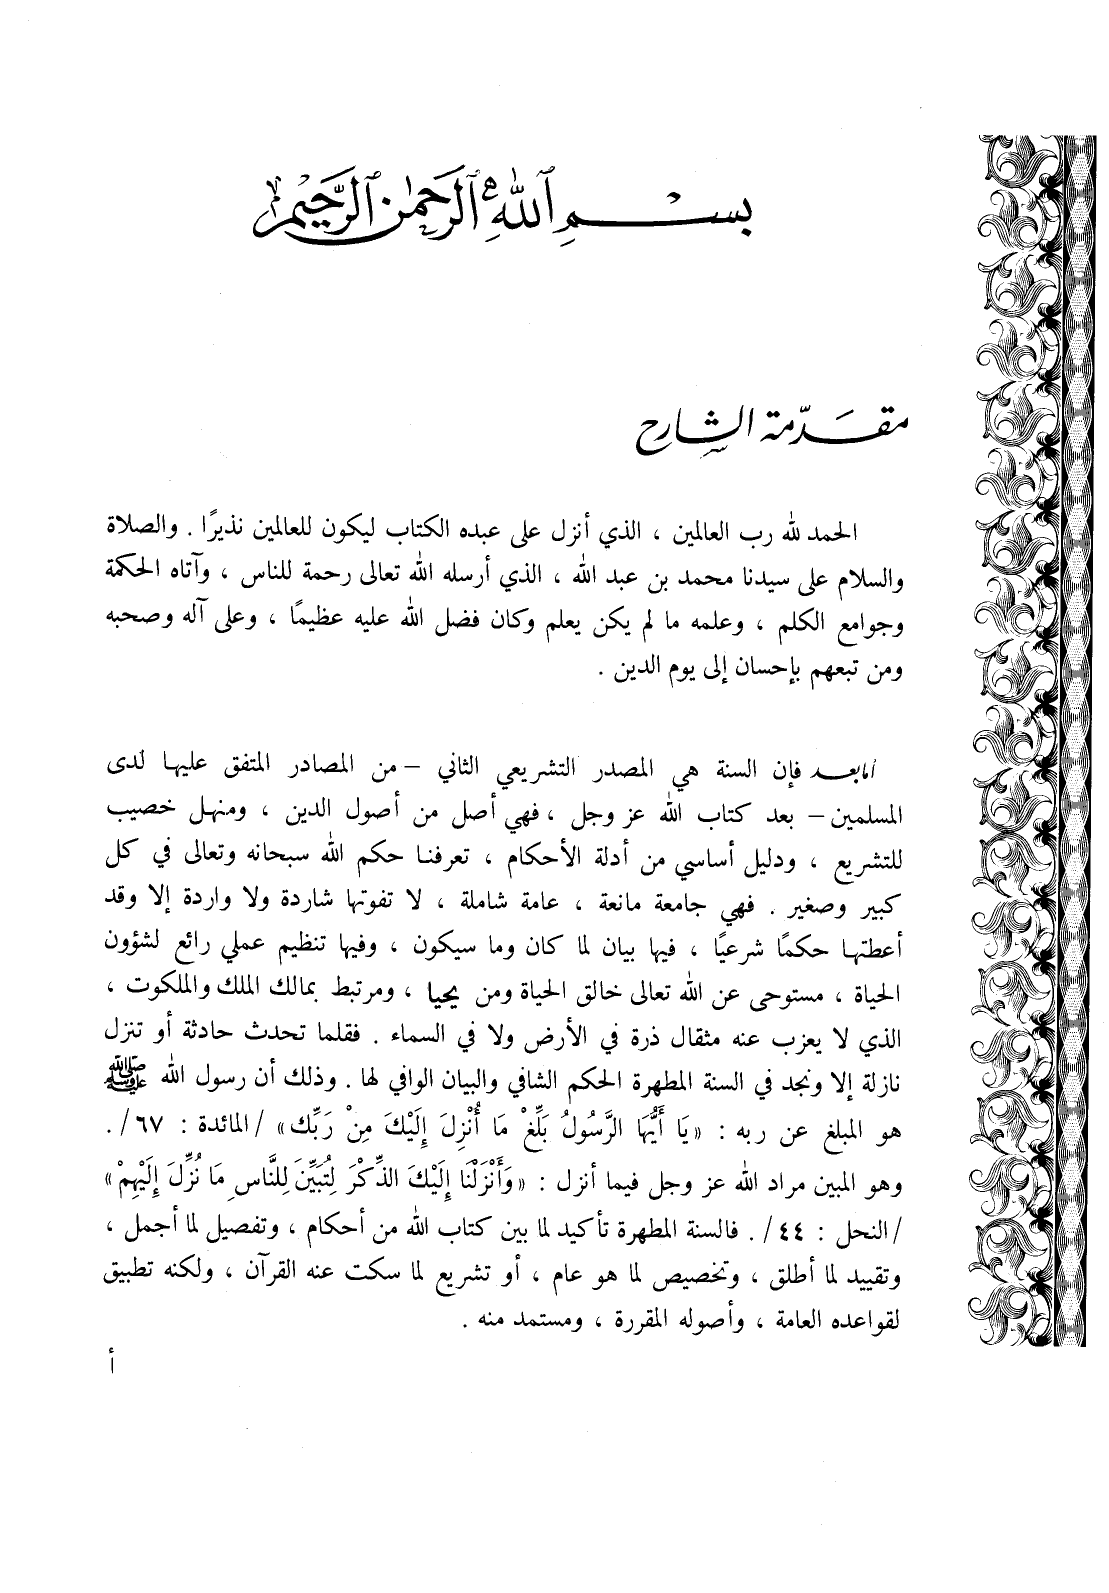 بسم الله الرحمن الرحيم
مقدّمة الشارح
الحمد لله رب العالمين ، الذي أنزل على عبده الكتاب ليكون للعالمين نذيرًا . والصلاة
والسلام على سيدنا محمد بن عبد الله ، الذي أرسله الله تعالى رحمة للناس ، وآتاه الحكمة
وجوامع الكلم ، وعلمه ما لم يكن يعلم وكان فضل الله عليه عظيمًا ، وعلى آله وصحبه
ومن تبعهم بإحسان إلى يوم الدين .
أما بعد فإن السنة هي المصدر التشريعي الثاني – من المصادر المتفق عليها لدى
المسلمين – بعد كتاب الله عز وجل ، فهي أصل من أصول الدين ، ومنهل خصيب
للتشريع ، ودليل أساسي من أدلة الأحكام ، تعرفنا حكم الله سبحانه وتعالى في كل
كبير وصغير . فهي جامعة مانعة ، عامة شاملة ، لا تفوتها شاردة ولا واردة إلا وقد
أعطتها حكمًا شرعيًا ، فيها بيان لما كان وما سيكون ، وفيها تنظيم عملي رائع لشؤون
الحياة ، مستوحى عن الله تعالى خالق الحياة ومن يحيا ، ومرتبط بمالك الملك والملكوت ،
الذي لا يعزب عنه مثقال ذرة في الأرض ولا في السماء . فقلما تحدث حادثة أو تنزل
نازلة إلا ونجد في السنة المطهرة الحكم الشافي والبيان الوافي لها . وذلك أن رسول الله ﷺ
هو المبلغ عن ربه : «يَا أَيُّهَا الرَّسُولُ بَلِّغْ مَا أُنْزِلَ إِلَيْكَ مِنْ رَبِّكَ» /المائدة : ٦٧/.
وهو المبين مراد الله عز وجل فيما أنزل : «وَأَنْزَلْنَا إِلَيْكَ الذِّكْرَ لِتُبَيِّنَ لِلنَّاسِ مَا نُزِّلَ إِلَيْهِمْ»
/النحل : ٤٤/. فالسنة المطهرة تأكيد لما بين كتاب الله من أحكام ، وتفصيل لما أجمل ،
وتقييد لما أطلق ، وتخصيص لما هو عام ، أو تشريع لما سكت عنه القرآن ، ولكنه تطبيق
لقواعده العامة ، وأصوله المقررة ، ومستمد منه .
أ